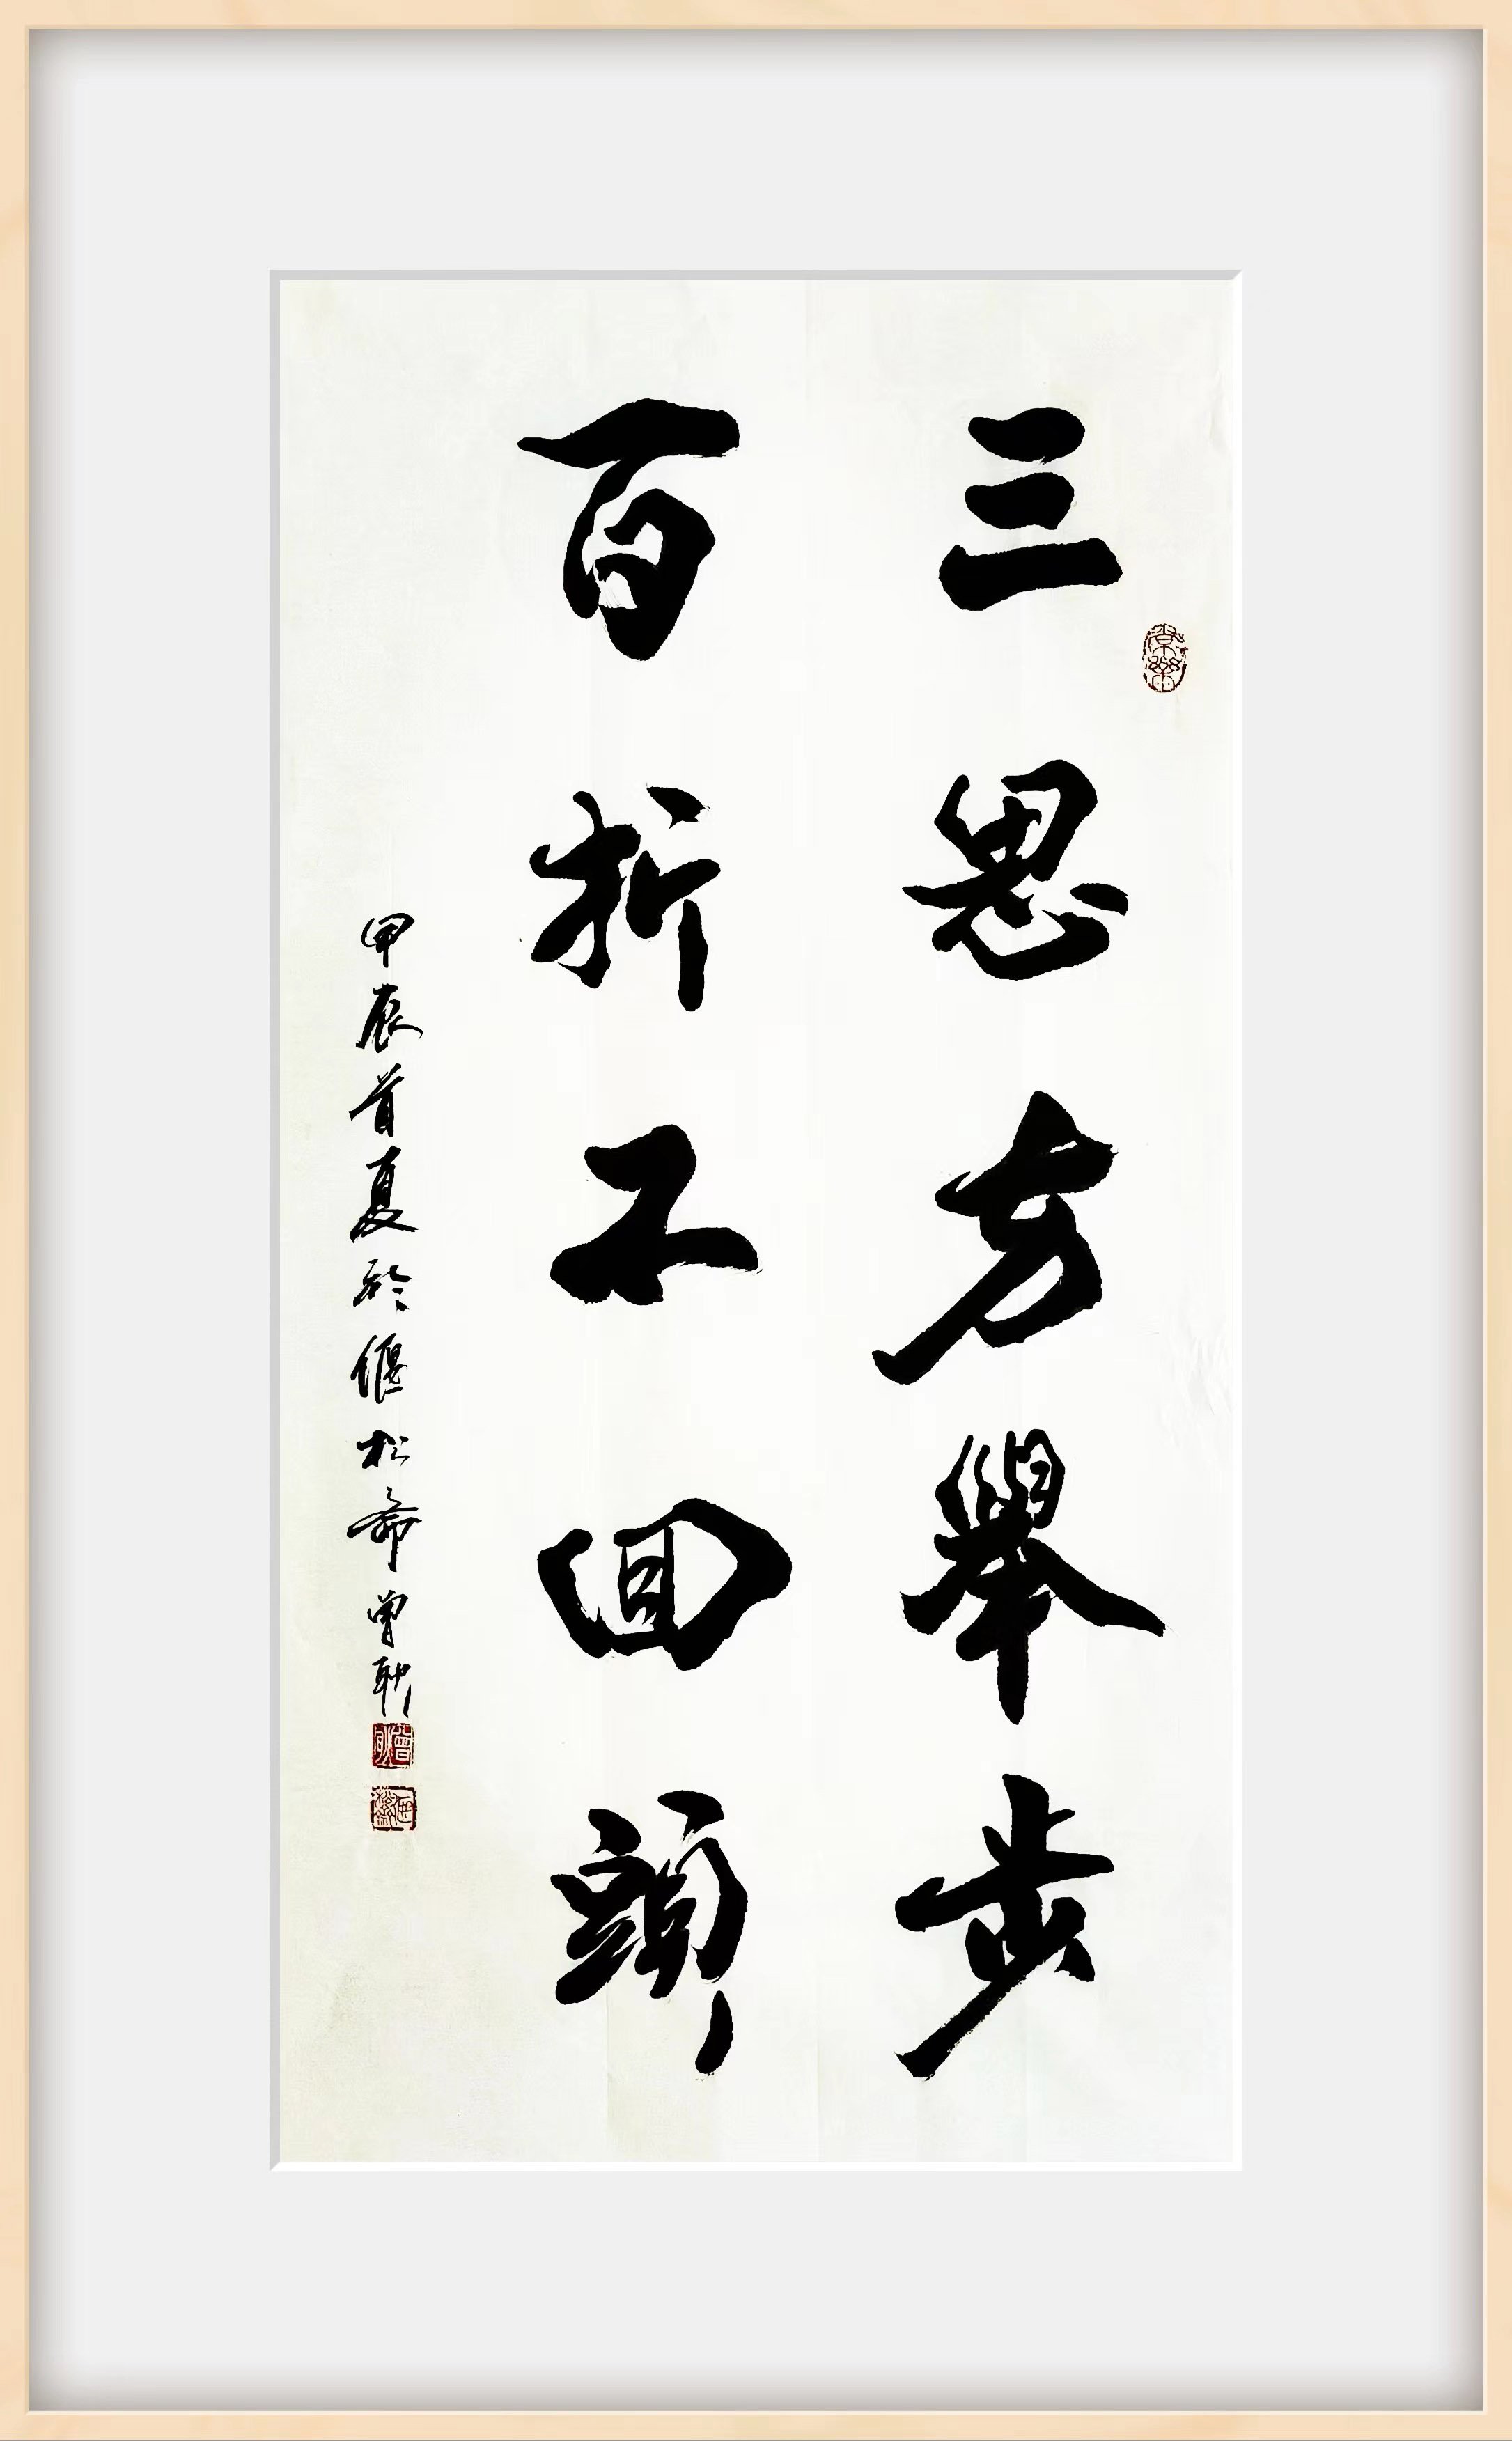 三思方舉步
百折不回頭
甲辰首夏於偃松齋曾耿